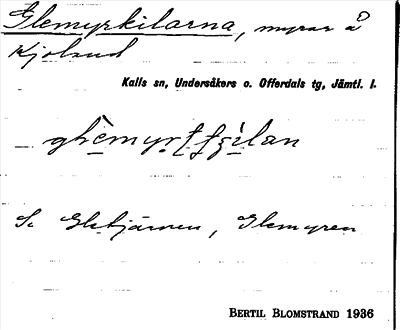 Glemyrkilarna, myrar å
Kjoland
Kalls sn, Undersåkers o. Offerdals tg, Jämtl. l.
Se Gletjärnen, Glemyren
BERTIL BLOMSTRAND 1936